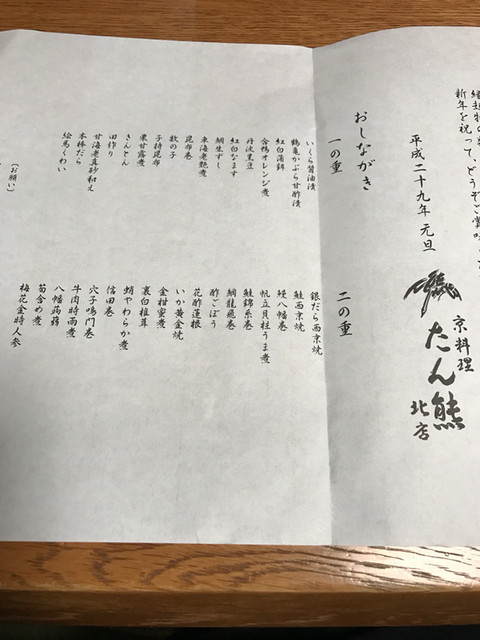 新年を祝って、どうぞご賞味
平成二十九年 元旦
京料理
たん熊
北店
おしながき
一の重
いくら醤油漬
鶴亀かぶら甘酢漬
紅白蒲鉾
合鴨オレンジ煮
丹波黒豆
紅白なます
鯛生ずし
車海老艶煮
昆布巻
数の子
子持昆布
栗甘露煮
きんとん
田作り
甘海老真砂和え
本棒だら
絵馬くわい
二の重
銀だら西京焼
鮭西京焼
鰻八幡巻
帆立貝柱うま煮
鮭錦糸巻
鯛龍飛巻
酢ごぼう
花酢蓮根
いか黄金焼
金柑蜜煮
裏白椎茸
蛸やわらか煮
信田巻
穴子鳴門巻
牛肉時雨煮
八幡蒟蒻
筍含め煮
梅花金時人参
(お願い)